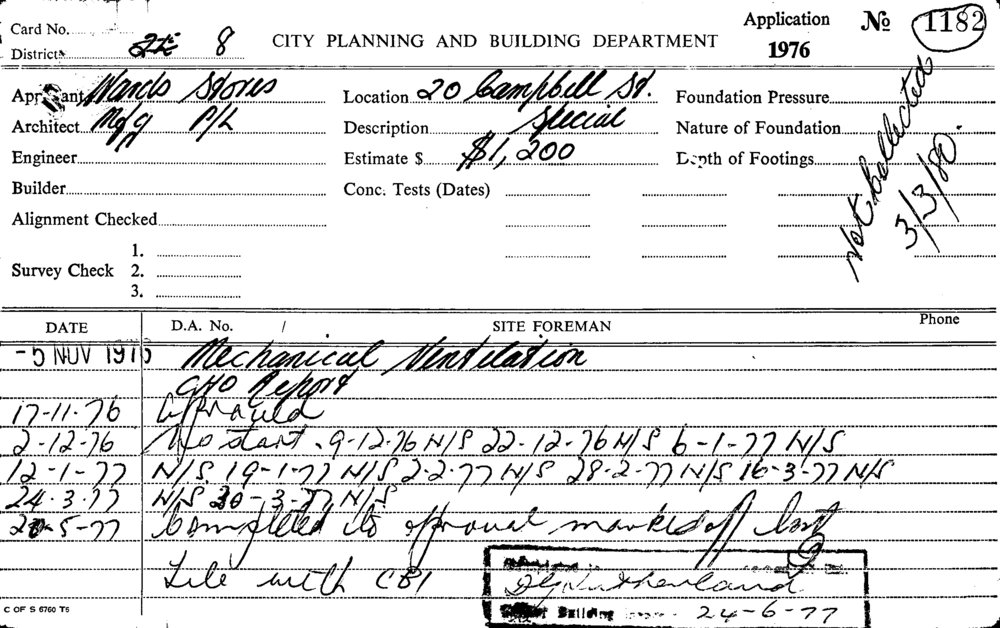 Card No.
District 8
CITY PLANNING AND BUILDING DEPARTMENT
Application
1976
No 1182
Applicant Wards Stores
Architect Mfg P/L
Engineer
Builder
Alignment Checked
Survey Check
1.
2.
3.
Location 20 Campbell St.
Description Special
Estimate $ $1,200
Conc. Tests (Dates)
Foundation Pressure
Nature of Foundation
Depth of Footings
Not Collected
3/3/80.
DATE D.A. No. / SITE FOREMAN Phone
-5 NOV 1976 Mechanical Ventilation
CHO Report
17-11-76 Approved
2-12-76 No start. 9-12-76 N/S 22-12-76 N/S 6-1-77 N/S
12-1-77 N/S. 19-1-77 N/S 2-2-77 N/S 28-2-77 N/S 16-3-77 N/S
24.3.77 N/S 30-3-77 N/S
20-5-77 Completed to approval marked off
File with CBI
Building
24-6-77
C OF S 6760 T5